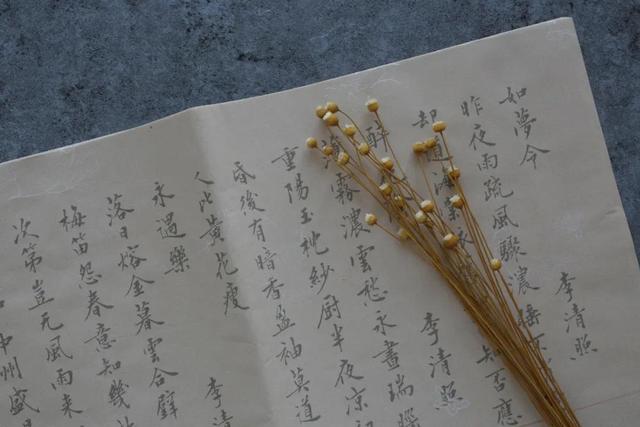 如夢令 李清照
昨夜雨疏風驟濃睡不
却道海棠依 知否應
醉 李清照
霧濃雲愁永晝瑞腦
重陽玉枕紗厨半夜凉初
昏後有暗香盈袖莫道
人比黃花瘦
永遇樂 李清
落日熔金暮雲合璧
梅笛怨春意知幾
次第豈无風雨来
中州盛